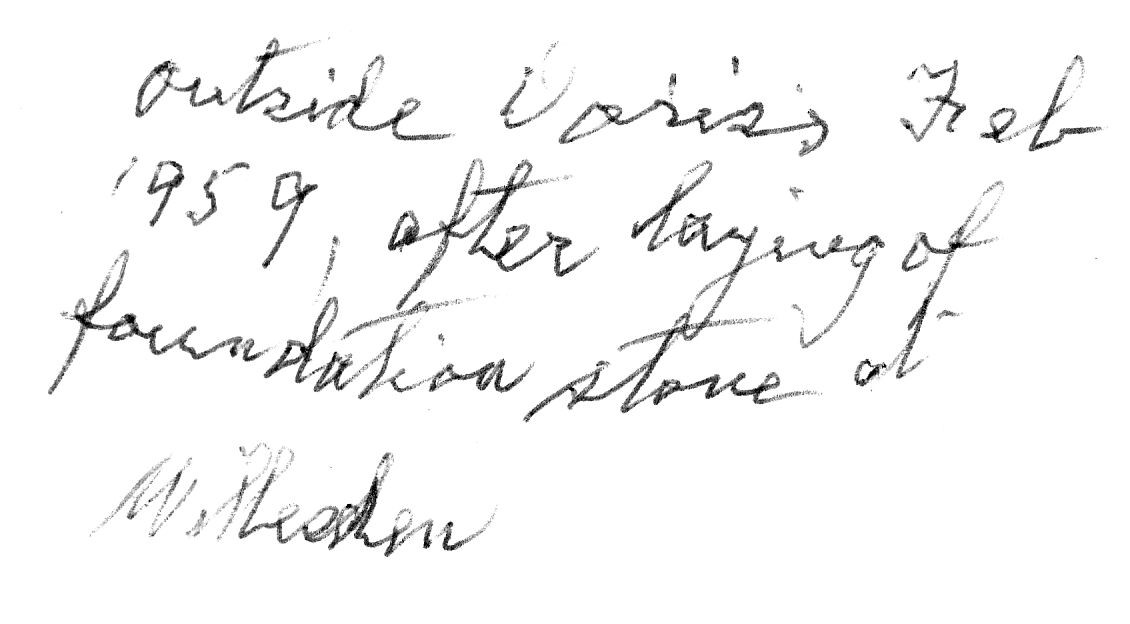 outside Doris's Feb
1959, after laying of
foundation stone at
Willesden